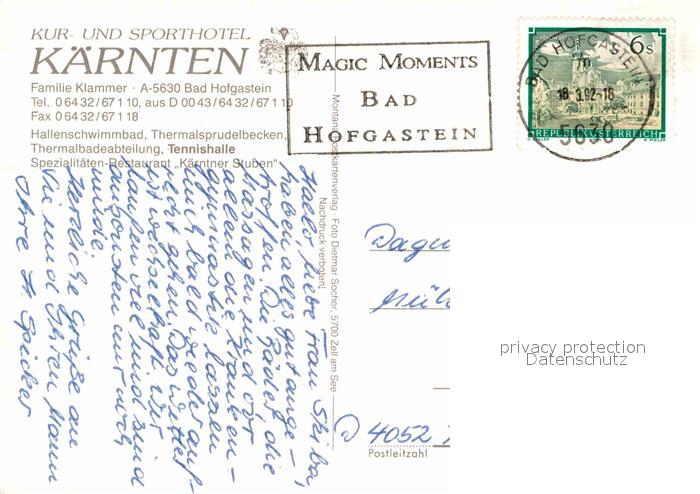 KUR- UND SPORTHOTEL
KÄRNTEN
Familie Klammer · A-5630 Bad Hofgastein
Tel. 0 64 32/67 1 10, aus D 00 43/64 32/67 1 10
Fax 0 64 32/67 1 18
Hallenschwimmbad, Thermalsprudelbecken,
Thermalbadeabteilung, Tennishalle
Spezialitäten-Restaurant „Kärntner Stuben"
MAGIC MOMENTS
BAD
HOFGASTEIN
6 S
BAD HOFGASTEIN
18.3.92-18
5630
REPUBLIK ÖSTERREICH
Montan-Postkartenverlag Foto Dietmar Sochor, 5700 Zell am See
Nachdruck verboten!
Hallo liebe Frau Skriba,
haben alles gut ange-
troffen. Die Bäder, die
Massagen und vor
allem die Kranken-
gymnastik lassen
mich bald wieder auf-
recht gehen. Das Wetter
ist wechselhaft, wir
laufen viel und sind
ansonsten nur noch
müde.
Herzliche Grüße an
Sie und Ihren Mann
Ihre H. Spicker
Dagm
Mühl
D 4052
Postleitzahl
privacy protection
Datenschutz